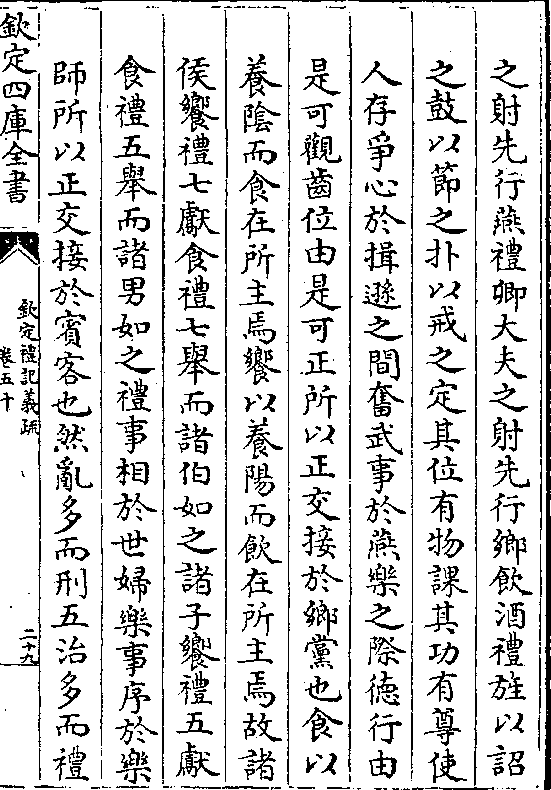 之射先行燕禮卿大夫之射先行鄉飲酒禮旌以詔
之鼓以節之扑以戒之定其位有物課其功有尊使
人存爭心於揖遜之間奮武事於燕樂之際德行由
是可觀齒位由是可正所以正交接於鄉黨也食以
養陰而食在所主焉饗以養陽而飲在所主焉故諸
侯饗禮七獻食禮七舉而諸伯如之諸子饗禮五獻
食禮五舉而諸男如之禮事相於世婦樂事序於樂
師所以正交接於賓客也然亂多而刑五治多而禮
欽定四庫全書
欽定禮記義疏
卷五十
二十九